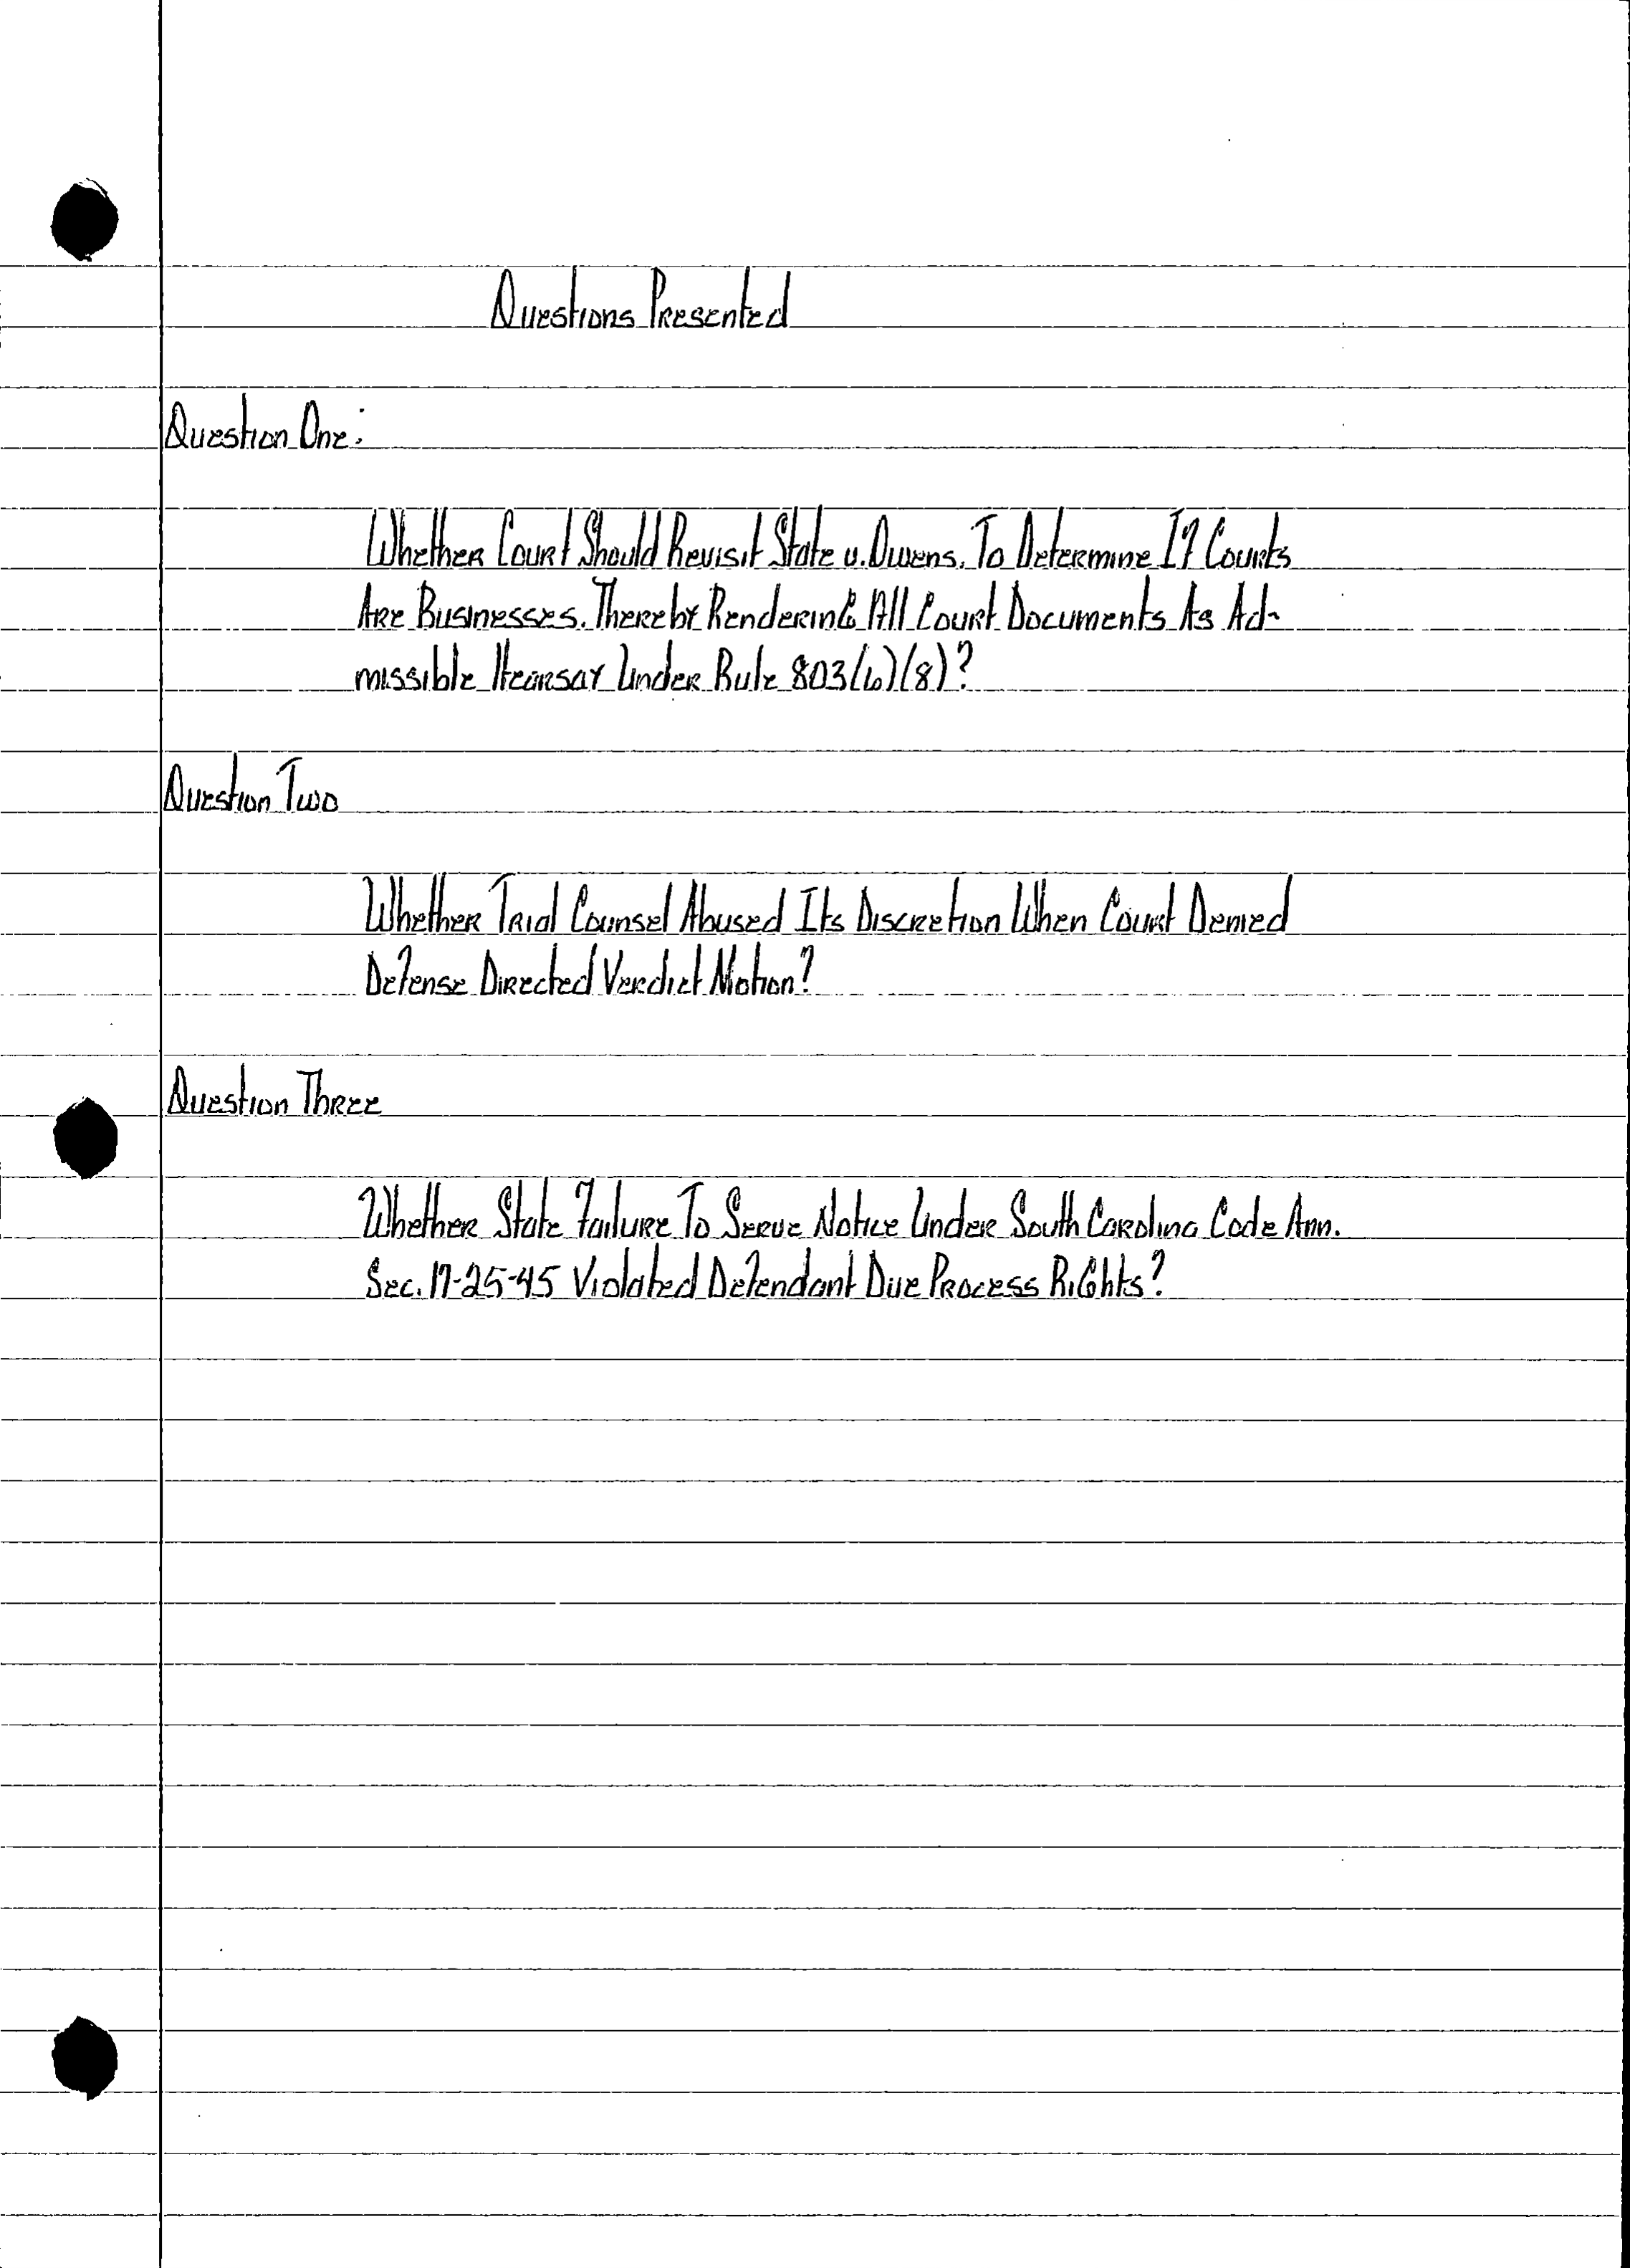 Questions Presented
Question One:
Whether Court Should Revisit State v. Owens. To Determine If Courts
Are Businesses. Thereby Rendering All Court Documents As Ad-
missible Hearsay Under Rule 803(6)(8)?
Question Two
Whether Trial Counsel Abused Its Discretion When Court Denied
Defense Directed Verdict Motion?
Question Three
Whether State Failure To Serve Notice Under South Carolina Code Ann.
Sec. 17-25-45 Violated Defendant Due Process Rights?